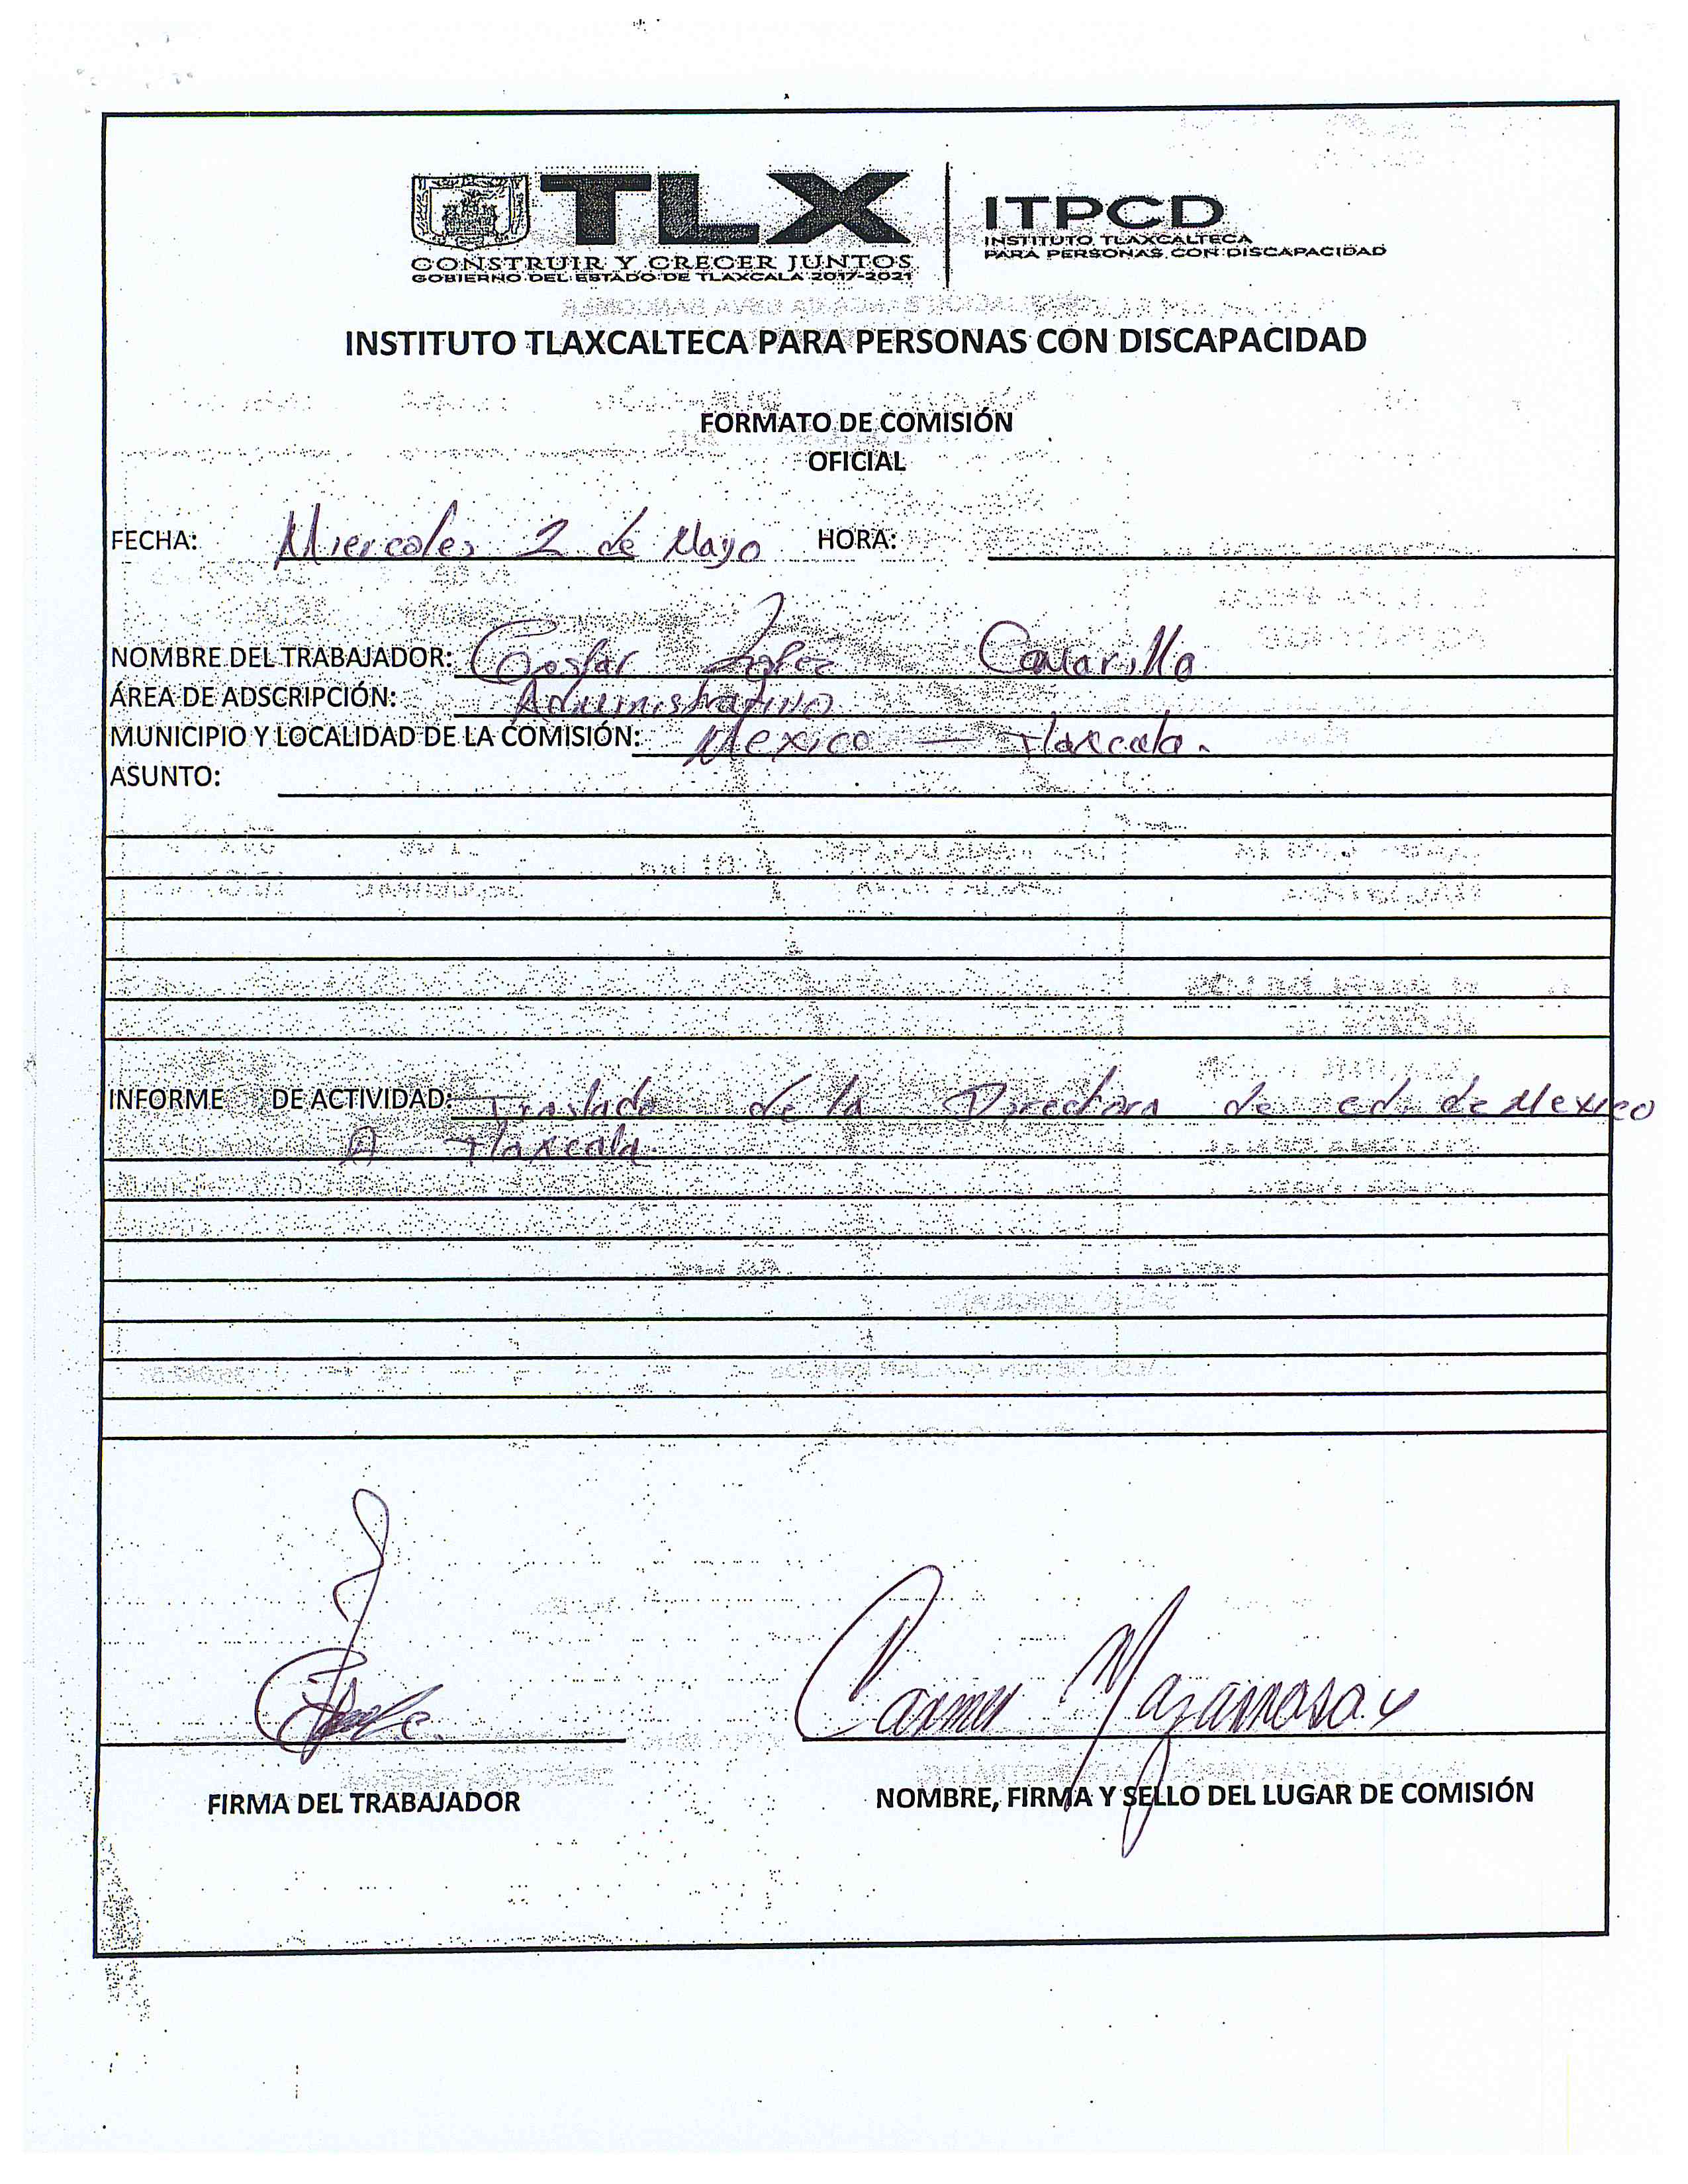 TLX
CONSTRUIR Y CRECER JUNTOS
GOBIERNO DEL ESTADO DE TLAXCALA 2017-2021
ITPCD
INSTITUTO TLAXCALTECA
PARA PERSONAS CON DISCAPACIDAD
INSTITUTO TLAXCALTECA PARA PERSONAS CON DISCAPACIDAD
FORMATO DE COMISIÓN
OFICIAL
FECHA: Miercoles 2 de Mayo HORA:
NOMBRE DEL TRABAJADOR: Lopez Camarillo
ÁREA DE ADSCRIPCIÓN: Administrativo
MUNICIPIO Y LOCALIDAD DE LA COMISIÓN: Mexico — Tlaxcala.
ASUNTO:
INFORME DE ACTIVIDAD: Traslado de la Directora de cd. de Mexico
A Tlaxcala.
Carmen
FIRMA DEL TRABAJADOR
NOMBRE, FIRMA Y SELLO DEL LUGAR DE COMISIÓN